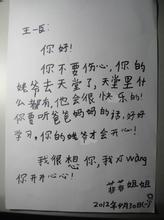 王一臣:
你好!
你不要伤心,你的
姥爷去天堂了,天堂里什
么都有,他会很快乐的!
你要听爸爸妈妈的话,好好
学习,你的姥爷才会开心!
我很想你,我xīwàng
你开开心心!
菲菲姐姐
2012年4月30日(一)